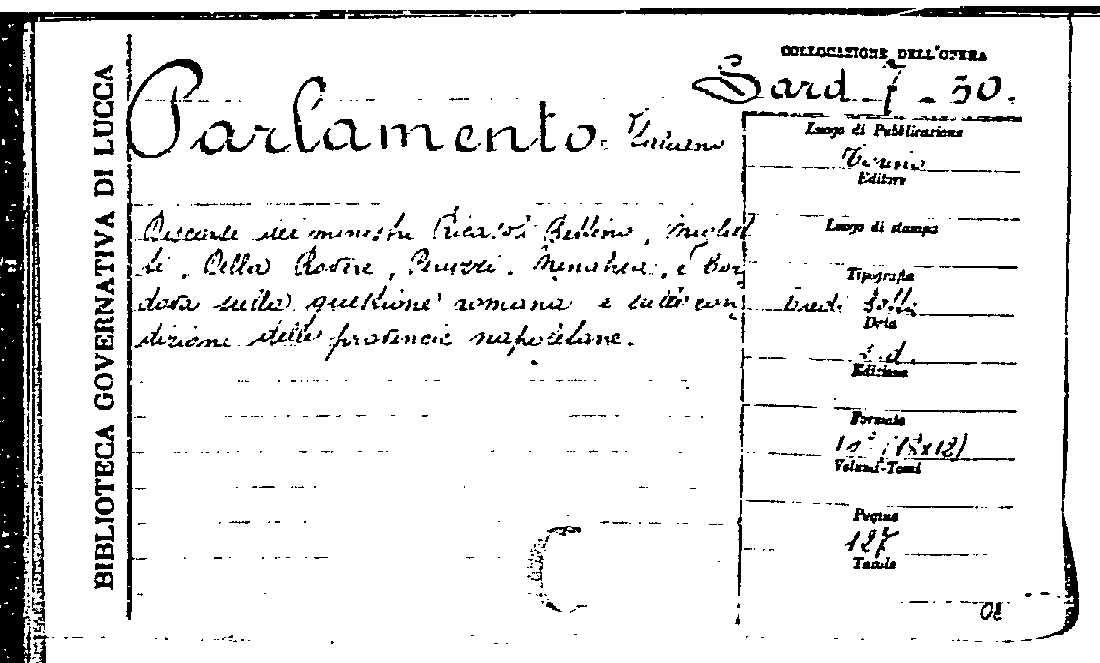 BIBLIOTECA GOVERNATIVA DI LUCCA
COLLOCAZIONE DELL'OPERA
Sard 7 - 50.
Parlamento.
Luogo di Pubblicazione
Torino
Editore
Discorsi dei ministri Ricasoli Bettino, Mighet
ti, Della Rovere, Peruzzi, Menabrea, e Cor
dova sulla questione romana e sulle con
dizioni delle provincie napoletane.
Luogo di stampa
Tipografia
Eredi Botta
Data
s. d.
Edizione
Formato
(18x12)
Volumi-Tomi
Pagine
127
Tavole